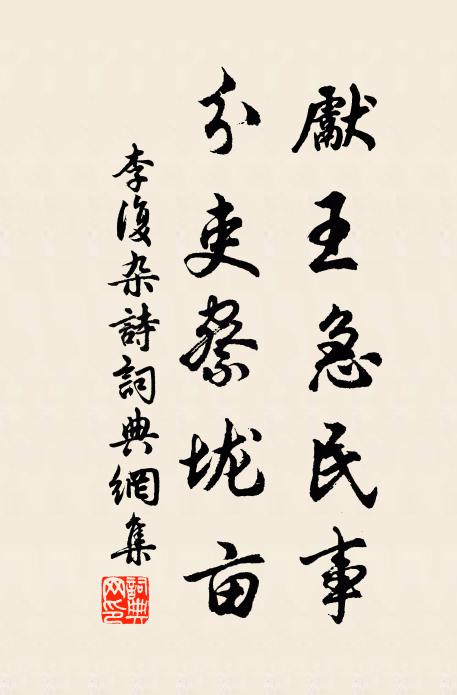 獻王急民事
分吏察垅亩
李復杂詩詞典網集
詞典网印